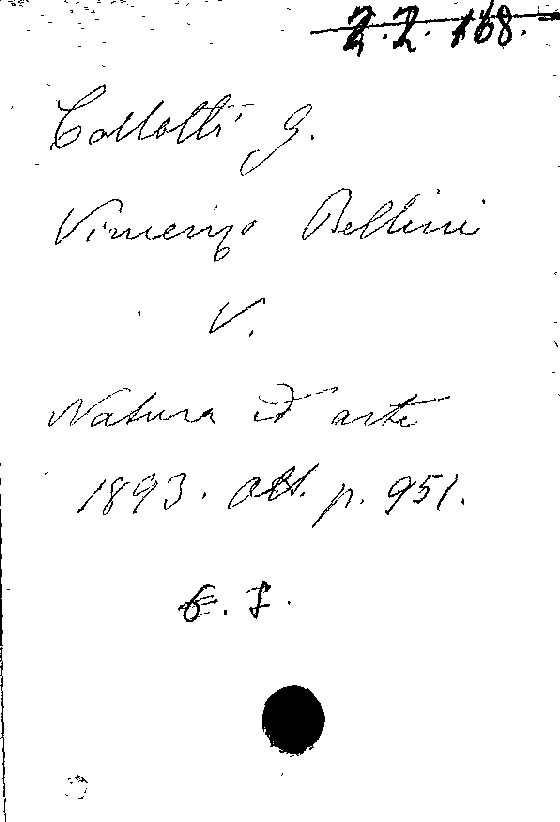 2.2.168.
Collotti G.
Vincenzo Bellini
V.
Natura ed arte
1893. Ott. p. 951.